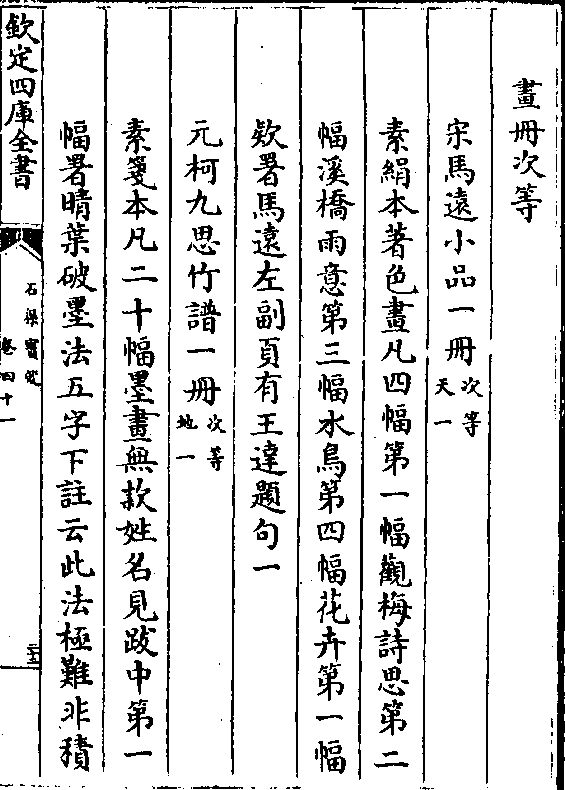 畫冊次等
宋馬遠小品一冊次等天一
素絹本著色畫凡四幅第一幅觀梅詩思第二
幅溪橋雨意第三幅水鳥第四幅花卉第一幅
欵署馬遠左副頁有王達題句一
元柯九思竹譜一冊次等地一
素箋本凡二十幅墨畫無款姓名見跋中第一
幅署晴葉破墨法五字下註云此法極難非積
欽定四庫全書
石渠寶笈
卷四十一
三十三